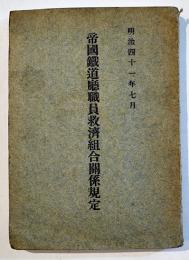 明治四十一年七月
帝國鐵道廳職員救濟組合關係規定